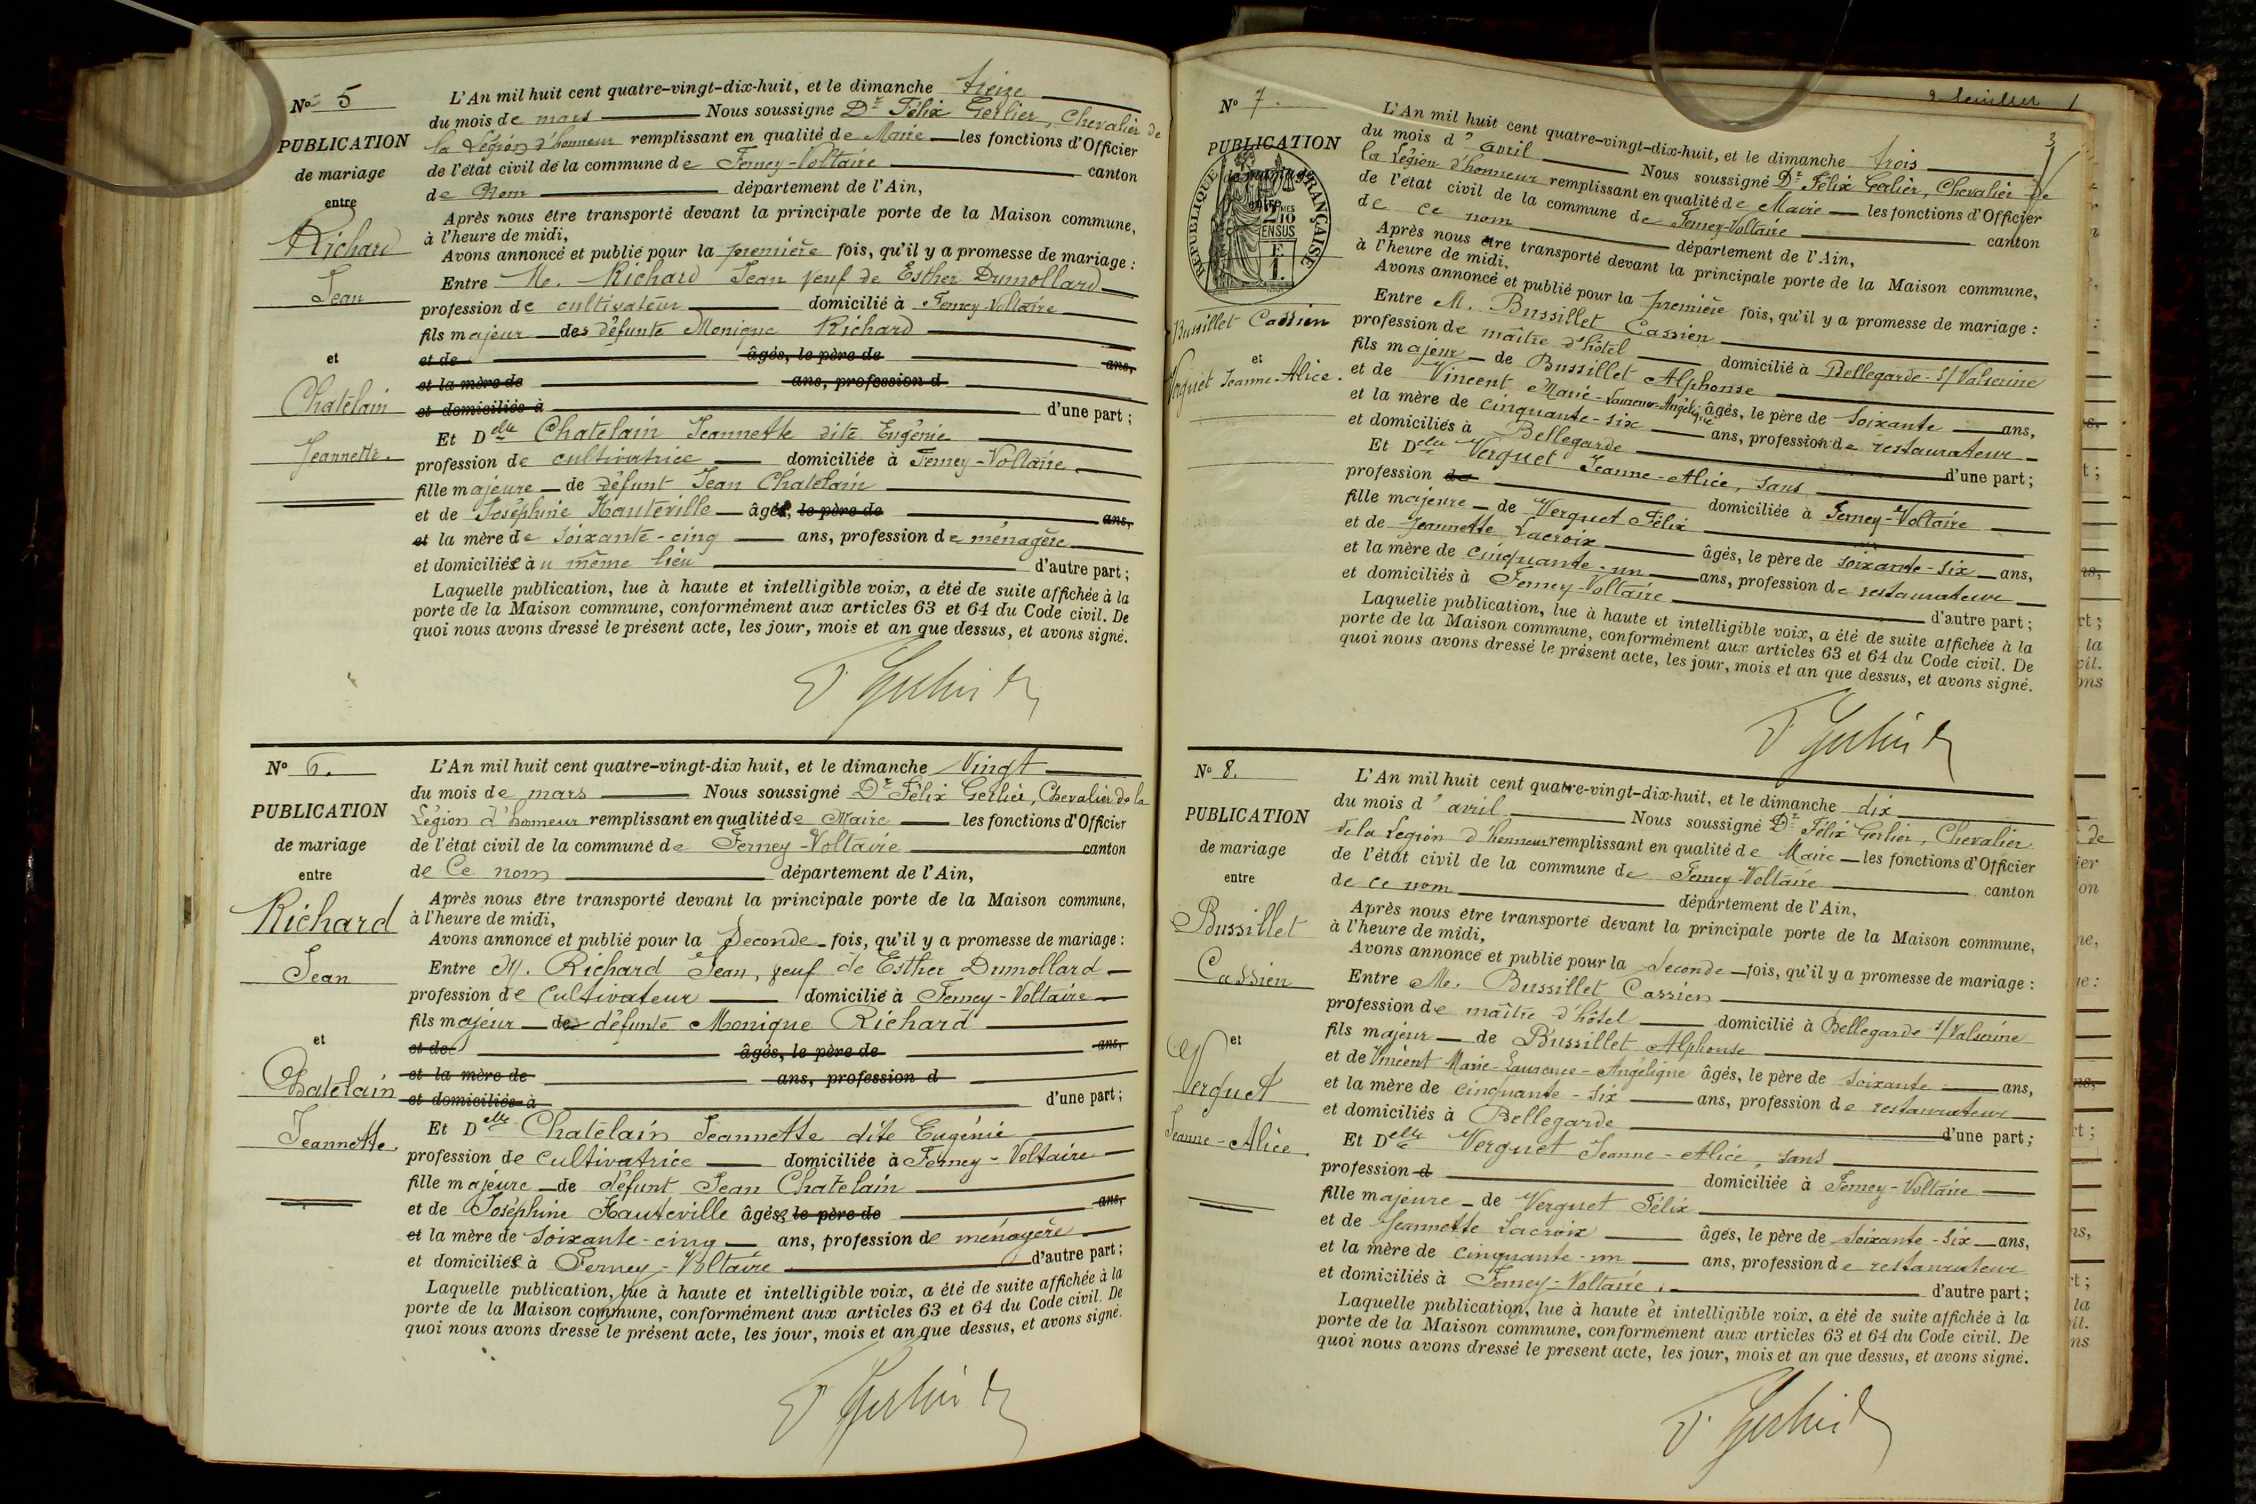 N° 5
PUBLICATION
de mariage
entre
Richard
Jean
et
Chatelain
Jeannette.
L'An mil huit cent quatre-vingt-dix-huit, et le dimanche treize
du mois de mars Nous soussigné Dr Félix Gerlier, Chevalier de
la Légion d'honneur remplissant en qualité de Maire les fonctions d'Officier
de l'état civil de la commune de Ferney-Voltaire canton
de Nom département de l'Ain,
Après nous être transporté devant la principale porte de la Maison commune,
à l'heure de midi,
Avons annoncé et publié pour la première fois, qu'il y a promesse de mariage :
Entre Mr. Richard Jean veuf de Esther Dumollard
profession de cultivateur domicilié à Ferney-Voltaire
fils majeur de défunte Monique Richard
et de âgés, le père de ans,
et la mère de ans, profession d
et domiciliés à d'une part ;
Et Delle Chatelain Jeannette dite Eugénie
profession de cultivatrice domiciliée à Ferney-Voltaire
fille majeure de défunt Jean Chatelain
et de Joséphine Hauteville âgés, le père de ans,
et la mère de soixante-cinq ans, profession de ménagère
et domiciliée au même lieu d'autre part ;
Laquelle publication, lue à haute et intelligible voix, a été de suite affichée à la
porte de la Maison commune, conformément aux articles 63 et 64 du Code civil. De
quoi nous avons dressé le présent acte, les jour, mois et an que dessus, et avons signé.
F Gerlier
N° 6.
PUBLICATION
de mariage
entre
Richard
Jean
et
Chatelain
Jeannette.
L'An mil huit cent quatre-vingt-dix huit, et le dimanche Vingt
du mois de mars Nous soussigné Dr Félix Gerlier, Chevalier de la
Légion d'honneur remplissant en qualité de Maire les fonctions d'Officier
de l'état civil de la commune de Ferney-Voltaire canton
de Ce nom département de l'Ain,
Après nous être transporté devant la principale porte de la Maison commune,
à l'heure de midi,
Avons annoncé et publié pour la Seconde fois, qu'il y a promesse de mariage :
Entre M. Richard Jean, veuf de Esther Dumollard
profession de cultivateur domicilié à Ferney-Voltaire
fils majeur de défunte Monique Richard
et de âgés, le père de ans,
et la mère de ans, profession d
et domiciliés à d'une part ;
Et Delle Chatelain Jeannette dite Eugénie
profession de cultivatrice domiciliée à Ferney-Voltaire
fille majeure de défunt Jean Chatelain
et de Joséphine Hauteville âgés, le père de ans,
et la mère de soixante-cinq ans, profession de ménagère
et domiciliée à Ferney-Voltaire d'autre part ;
Laquelle publication, lue à haute et intelligible voix, a été de suite affichée à la
porte de la Maison commune, conformément aux articles 63 et 64 du Code civil. De
quoi nous avons dressé le présent acte, les jour, mois et an que dessus, et avons signé.
F Gerlier
3
N° 7.
PUBLICATION
de mariage
entre
RÉPUBLIQUE FRANÇAISE
2/10
EN SUS
F.
1.
Bussillet Cassien
et
Verguet Jeanne-Alice.
L'An mil huit cent quatre-vingt-dix-huit, et le dimanche trois
du mois d'avril Nous soussigné Dr Félix Gerlier, Chevalier de
la Légion d'honneur remplissant en qualité de Maire les fonctions d'Officier
de l'état civil de la commune de Ferney-Voltaire canton
de ce nom département de l'Ain,
Après nous être transporté devant la principale porte de la Maison commune,
à l'heure de midi,
Avons annoncé et publié pour la première fois, qu'il y a promesse de mariage :
Entre M. Bussillet Cassien
profession de maître d'hôtel domicilié à Bellegarde-s/Valserine
fils majeur de Bussillet Alphonse
et de Vincent Marie-Laurence-Angélique âgés, le père de soixante ans,
et la mère de cinquante-six ans, profession de restaurateur
et domiciliés à Bellegarde d'une part ;
Et Delle Verguet Jeanne-Alice, sans
profession de domiciliée à Ferney-Voltaire
fille majeure de Verguet Félix
et de Jeannette Lacroix âgés, le père de soixante-six ans,
et la mère de cinquante-un ans, profession de restaurateur
et domiciliés à Ferney-Voltaire d'autre part ;
Laquelle publication, lue à haute et intelligible voix, a été de suite affichée à la
porte de la Maison commune, conformément aux articles 63 et 64 du Code civil. De
quoi nous avons dressé le présent acte, les jour, mois et an que dessus, et avons signé.
F Gerlier
N° 8.
PUBLICATION
de mariage
entre
Bussillet
Cassien
et
Verguet
Jeanne-Alice.
L'An mil huit cent quatre-vingt-dix-huit, et le dimanche dix
du mois d'avril Nous soussigné Dr Félix Gerlier, Chevalier
de la Légion d'honneur remplissant en qualité de Maire les fonctions d'Officier
de l'état civil de la commune de Ferney-Voltaire canton
de ce nom département de l'Ain,
Après nous être transporté devant la principale porte de la Maison commune,
à l'heure de midi,
Avons annoncé et publié pour la Seconde fois, qu'il y a promesse de mariage :
Entre Mr. Bussillet Cassien
profession de maître d'hôtel domicilié à Bellegarde-s/Valserine
fils majeur de Bussillet Alphonse
et de Vincent Marie-Laurence-Angélique âgés, le père de soixante ans,
et la mère de cinquante-six ans, profession de restaurateur
et domiciliés à Bellegarde d'une part ;
Et Delle Verguet Jeanne-Alice, sans
profession d domiciliée à Ferney-Voltaire
fille majeure de Verguet Félix
et de Jeannette Lacroix âgés, le père de soixante-six ans,
et la mère de cinquante-un ans, profession de restaurateur
et domiciliés à Ferney-Voltaire. d'autre part ;
Laquelle publication, lue à haute et intelligible voix, a été de suite affichée à la
porte de la Maison commune, conformément aux articles 63 et 64 du Code civil. De
quoi nous avons dressé le présent acte, les jour, mois et an que dessus, et avons signé.
F Gerlier